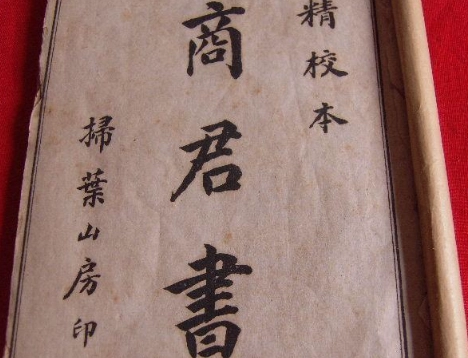 精校本
商君書
掃葉山房印